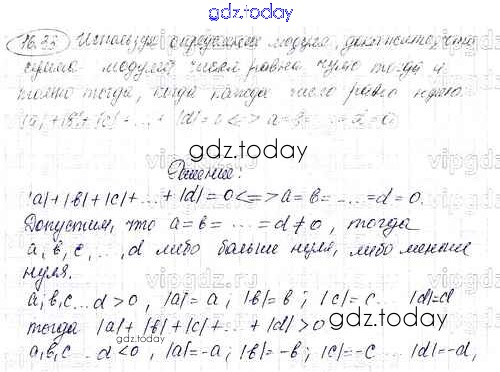 gdz.today
16.33 Используя определение модуля, докажите, что
сумма модулей чисел равна нулю тогда и
только тогда, когда каждое число равно нулю.
|a|+|b|+|c|+...+|d|=0<=>a=b=...=d=0
gdz.today
Решение:
|a|+|b|+|c|+...+|d|=0<=>a=b=...=d=0.
Допустим, что a=b=...=d≠0, тогда
a,b,c,...,d либо больше нуля, либо меньше
нуля.
gdz.today
a,b,c...d>0, |a|=a; |b|=b; |c|=c... |d|=d
тогда |a|+|b|+|c|+...+|d|>0
gdz.today
a,b,c...d<0, |a|=-a; |b|=-b; |c|=-c...|d|=-d,